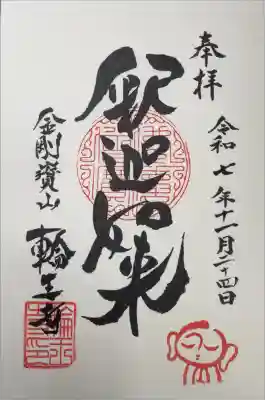 奉拝
令和七年十一月二十四日
釈迦如来
金剛寳山
輪王寺